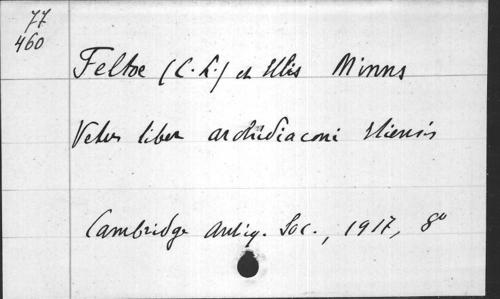 77
460
Feltoe (C. L.) et Ellis Minns
Vetus liber archidiaconi Eliensis
Cambridge Antiq. Soc., 1917, 8º